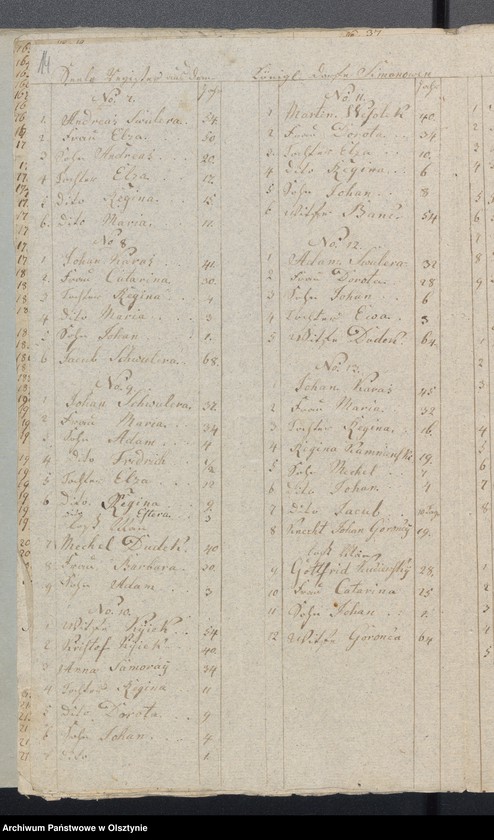 14
37
Seele Register aus dem Königl. Dorfe Simonowen
Jahr
No. 7.
1. Andreas Swulera. 54.
2 Frau Elza. 50
3 Sohn Andreas. 20.
4 Tochter Elza. 17.
5 Dito Regina. 15
6. Dito Maria. 11.
No 8.
1. Johan Karas 41.
2. Frau Catarina. 30.
3 Tochter Regina 4
4 Dito Maria 3
5 Sohn Johan 1.
6 Jacub Schwulera. 68.
No. 9.
1 Johan Schwulera. 37.
2 Frau Maria. 34
3 Sohn Adam 4
4 dito Fridrich
5 Tochter Elza 12
6 Dito Regina 9.
Dito Estera 3
7 Mechel Dudek. 40
8 Frau Barbara 30.
9 Sohn Adam 3
No. 10.
1 Witwe 54
2 Kristof 40.
3 Anna Samoray 34
4 Tochter Regina 11
5 Dito Dorota 9
6 Sohn Johan 4.
7 dito 1.
Jahr
No. 11.
1 Martin 40.
2 Frau Dorota 34.
3 Tochter Elza 10.
4 Dito Regina 6
5 Sohn Johan 8
6 Witwe 54
No. 12.
1 Adam Swulera 31
2 Frau Dorota 28
3 Sohn Johan 6
4 Tochter Ewa 3
5 Witwe Dudek 64.
No. 13.
1 Johan Karas 45
2 Frau Maria 32
3 Tochter Regina. 16.
4 Regina 19.
5 Sohn Mechel 7
6 Dito Johan 4
7 Dito Jacub
8 Knecht Johan Gorонcy 19.
9 Gottfrid 28.
10 Frau Catarina 25
11 Sohn Johan 1.
12 Witwe Goronca 64
Archiwum Państwowe w Olsztynie